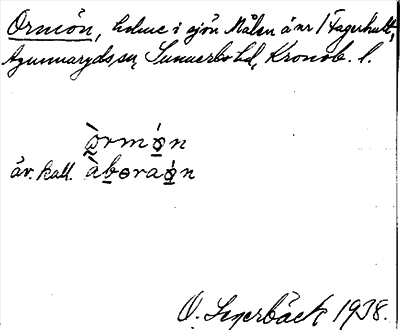 Ormön, holme i sjön Målen å nr 1 Fagerhult,
Agunnaryds sn, Sunnerbo hd, Kronob. l.
òrmö́n
äv. kall. àboraö́n
O. Segerbäck 1938.